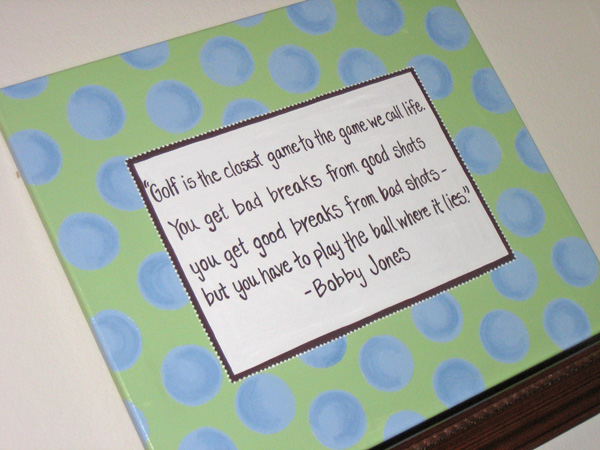 "Golf is the closest game to the game we call life.
You get bad breaks from good shots
you get good breaks from bad shots -
but you have to play the ball where it lies."
-Bobby Jones